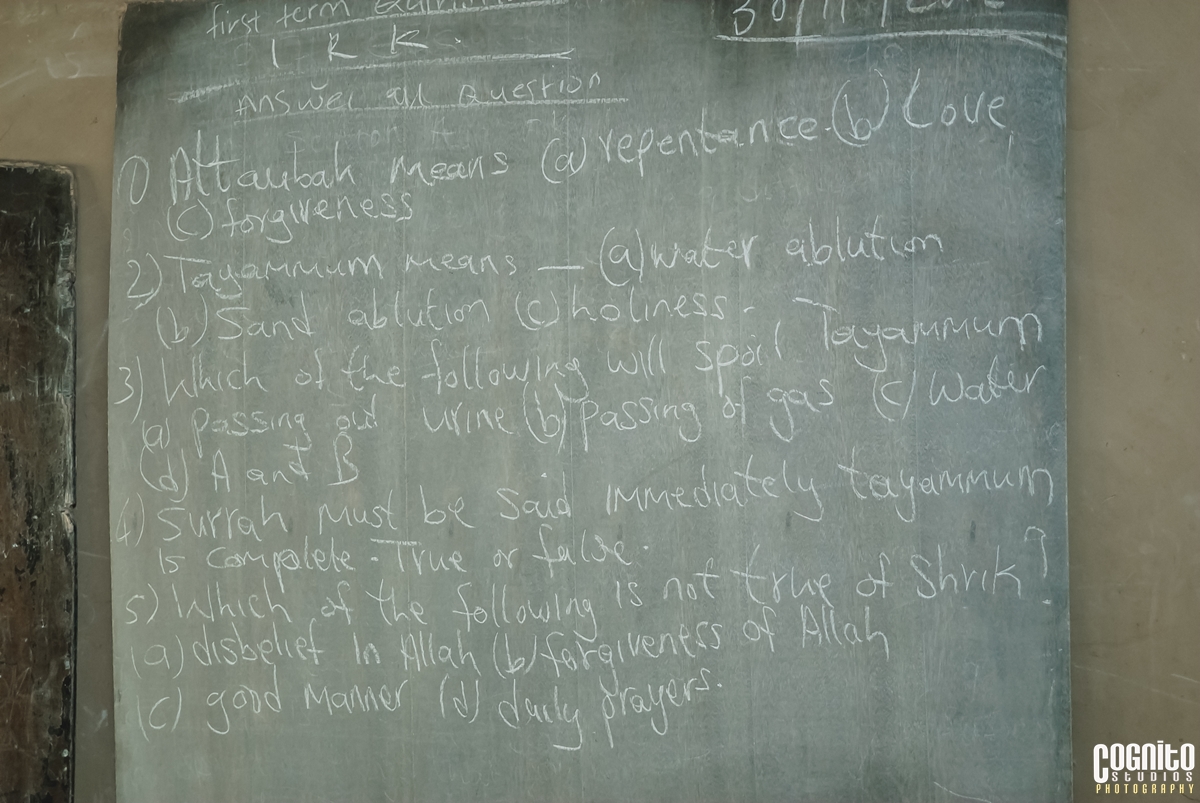 first term
30/11/
I R K.
Answer all Question
1) Attaubah means (a) repentance. (b) Love,
(c) forgiveness
2) Tayammum means — (a) water ablution
(b) Sand ablution (c) holiness -
3) Which of the following will spoil Tayammum
(a) passing out urine (b) passing of gas (c) Water
(d) A and B
4) Surrah must be said immediately tayammum
is complete - True or false.
5) Which of the following is not true of Shrik?
(a) disbelief in Allah (b) forgiveness of Allah
(c) good manner (d) daily prayers.
COGNITO
STUDIOS
PHOTOGRAPHY